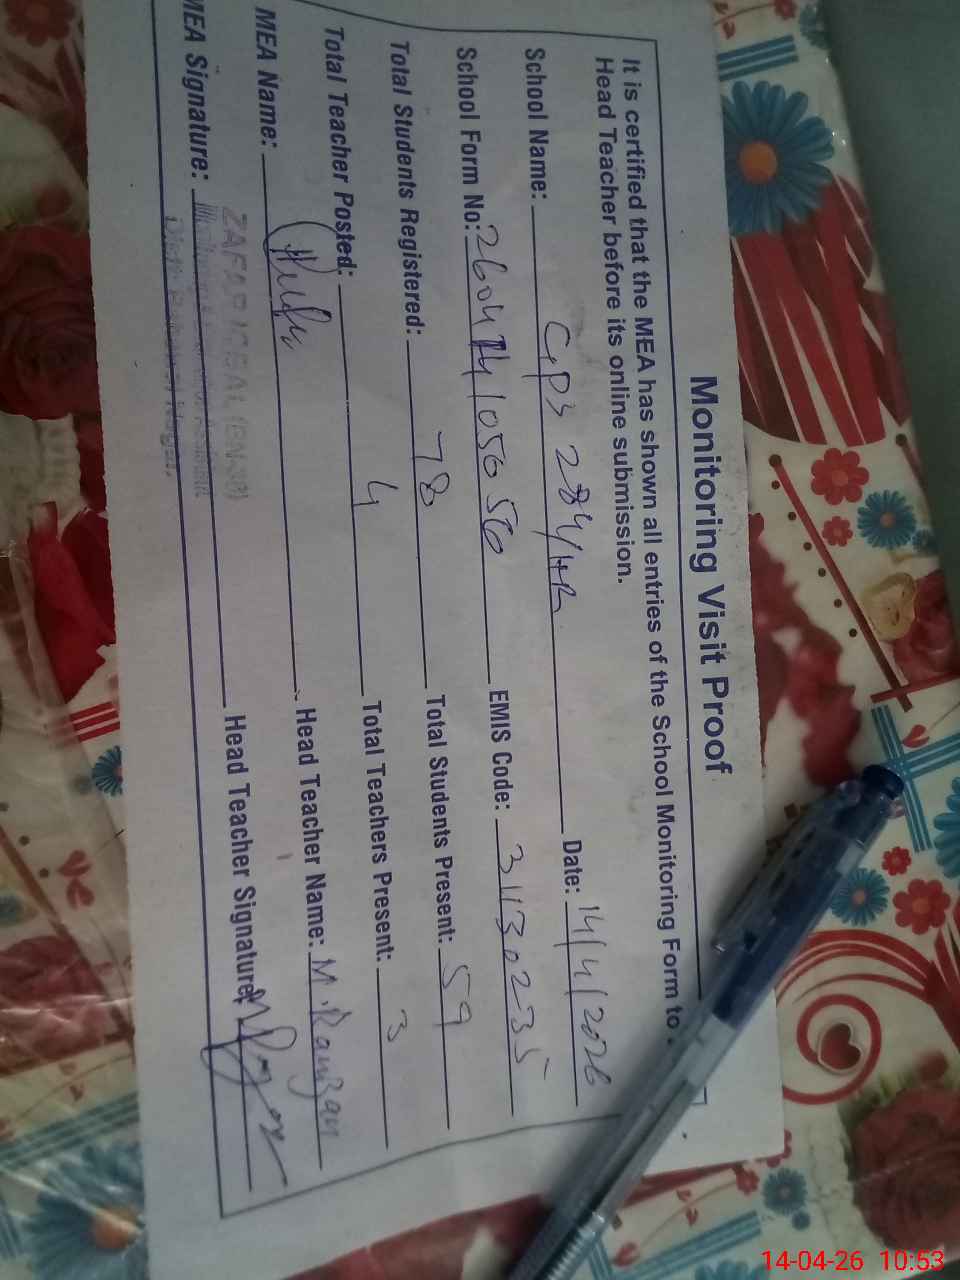 Monitoring Visit Proof
It is certified that the MEA has shown all entries of the School Monitoring Form to
Head Teacher before its online submission.
School Name: GPS 284/HR Date: 14/4/2026
School Form No: 260414105056 EMIS Code: 31130235
Total Students Registered: 78 Total Students Present: 59
Total Teacher Posted: 4 Total Teachers Present: 3
MEA Name: Head Teacher Name: M. Ramzan
ZAFAR IQBAL
MEA Signature: Head Teacher Signature
14-04-26 10:53